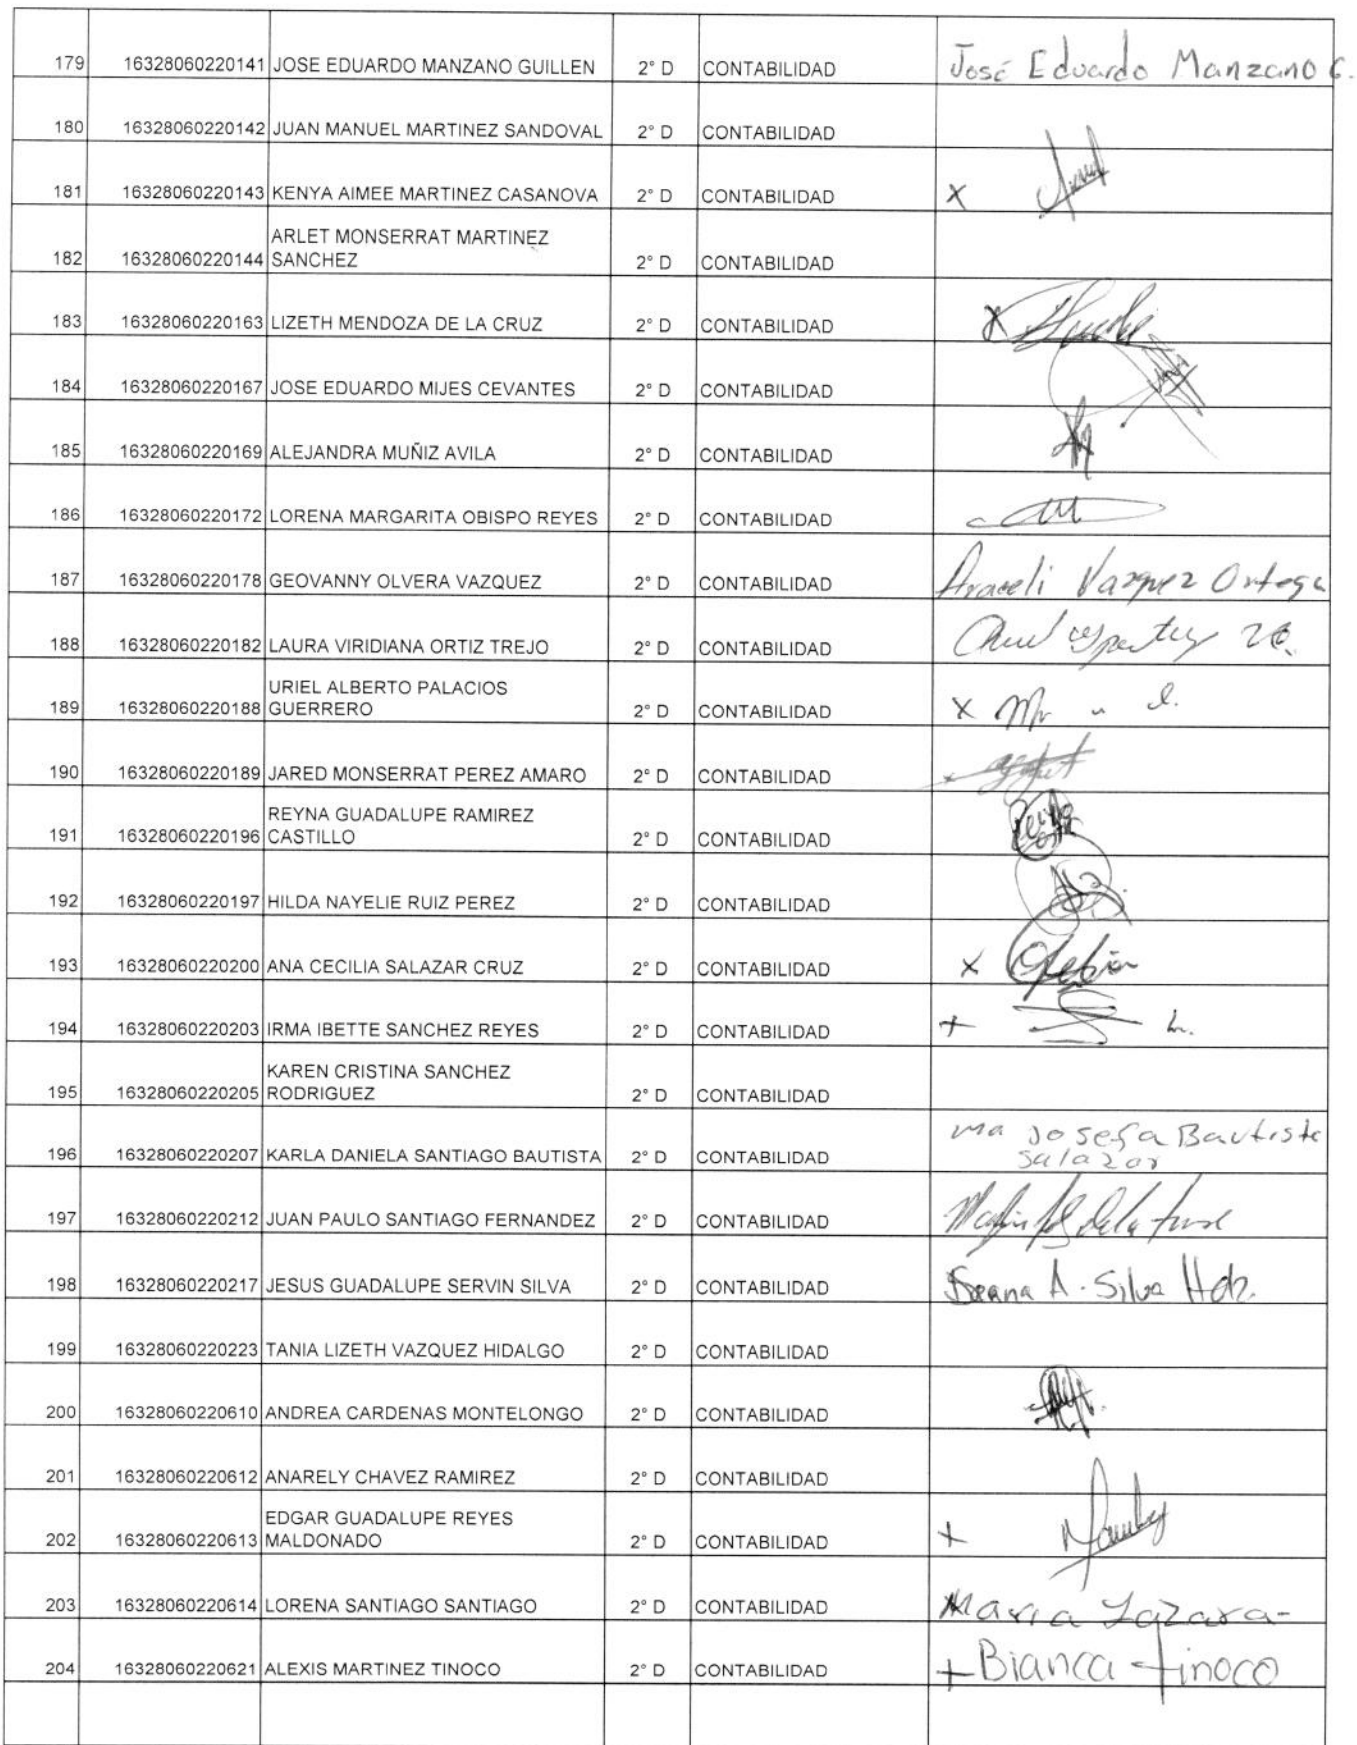 179 16328060220141 JOSE EDUARDO MANZANO GUILLEN 2° D CONTABILIDAD José Eduardo Manzano G.
180 16328060220142 JUAN MANUEL MARTINEZ SANDOVAL 2° D CONTABILIDAD
181 16328060220143 KENYA AIMEE MARTINEZ CASANOVA 2° D CONTABILIDAD x
ARLET MONSERRAT MARTINEZ
182 16328060220144 SANCHEZ 2° D CONTABILIDAD
183 16328060220163 LIZETH MENDOZA DE LA CRUZ 2° D CONTABILIDAD x
184 16328060220167 JOSE EDUARDO MIJES CEVANTES 2° D CONTABILIDAD
185 16328060220169 ALEJANDRA MUÑIZ AVILA 2° D CONTABILIDAD
186 16328060220172 LORENA MARGARITA OBISPO REYES 2° D CONTABILIDAD
187 16328060220178 GEOVANNY OLVERA VAZQUEZ 2° D CONTABILIDAD Araceli Vazquez Ortega
188 16328060220182 LAURA VIRIDIANA ORTIZ TREJO 2° D CONTABILIDAD
URIEL ALBERTO PALACIOS
189 16328060220188 GUERRERO 2° D CONTABILIDAD x
190 16328060220189 JARED MONSERRAT PEREZ AMARO 2° D CONTABILIDAD
REYNA GUADALUPE RAMIREZ
191 16328060220196 CASTILLO 2° D CONTABILIDAD
192 16328060220197 HILDA NAYELIE RUIZ PEREZ 2° D CONTABILIDAD
193 16328060220200 ANA CECILIA SALAZAR CRUZ 2° D CONTABILIDAD x
194 16328060220203 IRMA IBETTE SANCHEZ REYES 2° D CONTABILIDAD +
KAREN CRISTINA SANCHEZ
195 16328060220205 RODRIGUEZ 2° D CONTABILIDAD
ma Josefa Bautista
196 16328060220207 KARLA DANIELA SANTIAGO BAUTISTA 2° D CONTABILIDAD Salazar
197 16328060220212 JUAN PAULO SANTIAGO FERNANDEZ 2° D CONTABILIDAD
198 16328060220217 JESUS GUADALUPE SERVIN SILVA 2° D CONTABILIDAD A. Silva Hdz.
199 16328060220223 TANIA LIZETH VAZQUEZ HIDALGO 2° D CONTABILIDAD
200 16328060220610 ANDREA CARDENAS MONTELONGO 2° D CONTABILIDAD
201 16328060220612 ANARELY CHAVEZ RAMIREZ 2° D CONTABILIDAD
EDGAR GUADALUPE REYES
202 16328060220613 MALDONADO 2° D CONTABILIDAD +
203 16328060220614 LORENA SANTIAGO SANTIAGO 2° D CONTABILIDAD Maria Lazara-
204 16328060220621 ALEXIS MARTINEZ TINOCO 2° D CONTABILIDAD + Bianca tinoco